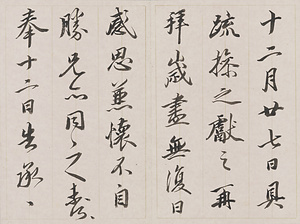 十二月廿七日具
疏探之獻之再
拜歲盡無復日
感思兼懷不自
勝兄亦同之壽
奉十二日告承、